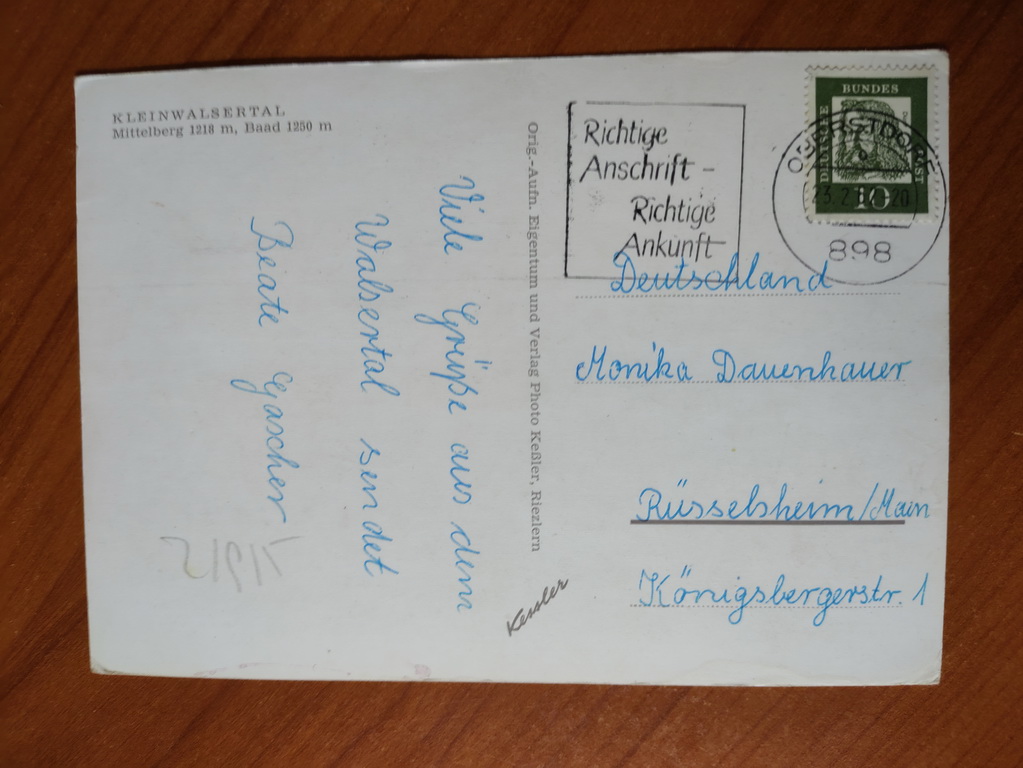 KLEINWALSERTAL
Mittelberg 1218 m, Baad 1250 m
Viele Grüße aus dem
Walsertal sendet
Beate Gascher
Orig.-Aufn. Eigentum und Verlag Photo Keßler, Riezlern
Kessler
Richtige
Anschrift -
Richtige
Ankunft
DEUTSCHE BUNDESPOST
10
OBERSTDORF
898
Deutschland
Monika Dauenhauer
Rüsselsheim/Main
Königsbergerstr. 1